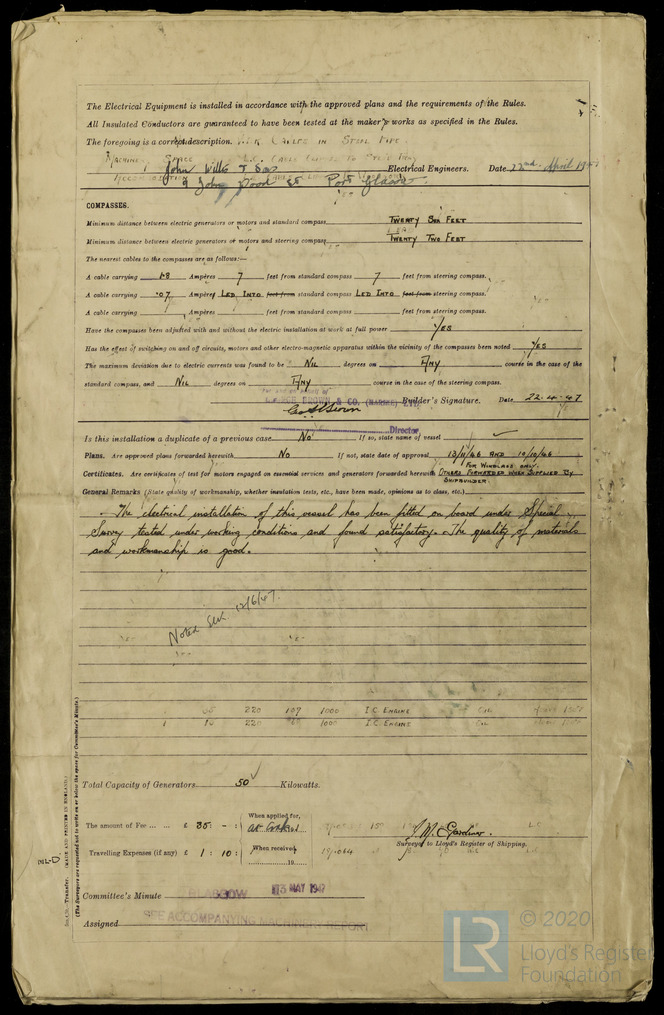 The Electrical Equipment is installed in accordance with the approved plans and the requirements of the Rules.
All Insulated Conductors are guaranteed to have been tested at the maker's works as specified in the Rules.
The foregoing is a correct description.
John Wills & Sons Electrical Engineers. Date 22nd April 19
9 John Wood St Port Glasgow
COMPASSES.
Minimum distance between electric generators or motors and standard compass TWENTY SIX FEET
Minimum distance between electric generators or motors and steering compass TWENTY TWO FEET
The nearest cables to the compasses are as follows:—
A cable carrying 1.8 Ampères 7 feet from standard compass 7 feet from steering compass.
A cable carrying .07 Ampères LED INTO feet from standard compass LED INTO feet from steering compass.
A cable carrying Ampères feet from standard compass feet from steering compass.
Have the compasses been adjusted with and without the electric installation at work at full power YES
Has the effect of switching on and off circuits, motors and other electro-magnetic apparatus within the vicinity of the compasses been noted YES
The maximum deviation due to electric currents was found to be NIL degrees on ANY course in the case of the
standard compass, and NIL degrees on ANY course in the case of the steering compass.
BROWN & CO. Builder's Signature. Date 22.4.47
Director.
Is this installation a duplicate of a previous case No If so, state name of vessel
Plans. Are approved plans forwarded herewith No If not, state date of approval 13/11/46 AND 10/10/46
Certificates. Are certificates of test for motors engaged on essential services and generators forwarded herewith FOR WINDLASS ONLY.
OTHERS FORWARDED WHEN SUPPLIED BY
SHIPBUILDER.
General Remarks (State quality of workmanship, whether insulation tests, etc., have been made, opinions as to class, etc.)
The electrical installation of this vessel has been fitted on board under Special
Survey tested under working conditions and found satisfactory. The quality of materials
and workmanship is good.
Noted 12/6/47.
220 107 1000 I.C ENGINE
220 1000 I.C ENGINE
Total Capacity of Generators 50 Kilowatts.
The amount of Fee ... ... £ 35 - : When applied for,
J. M. Gardner.
Surveyor to Lloyd's Register of Shipping.
Travelling Expenses (if any) £ 1 : 10 : When received,
19
Committee's Minute GLASGOW 13 MAY 1947
SEE ACCOMPANYING MACHINERY REPORT
Assigned
(The Surveyors are requested not to write on or below the space for Committee's Minute.)
(MADE AND PRINTED IN ENGLAND.)
Transfer.
LR © 2020
Lloyd's Register
Foundation